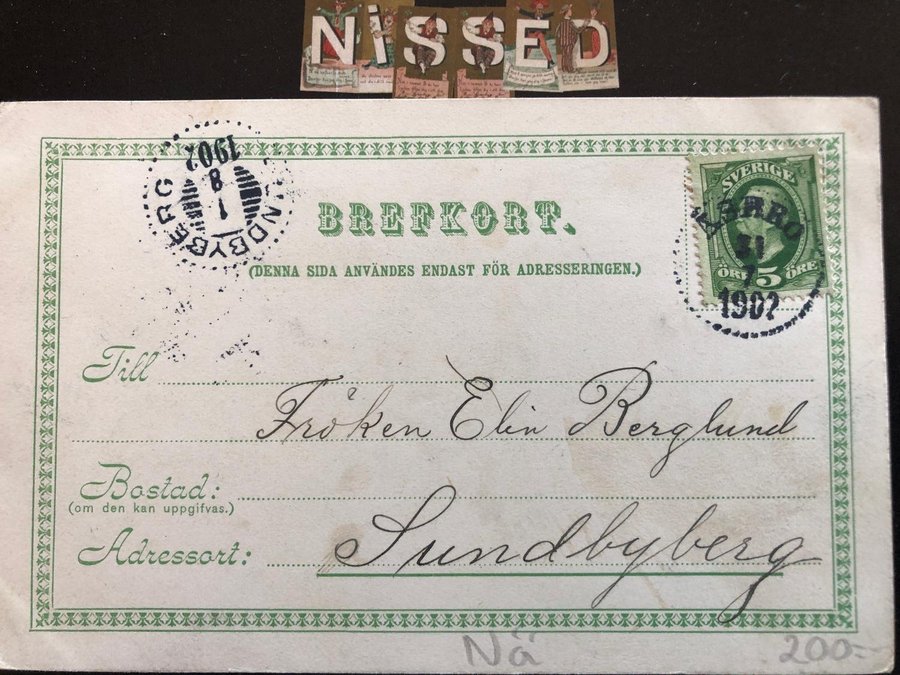 NISSED
SUNDBYBERG
1
8
1902
SVERIGE
31
7
1902
ÖRE 5 ÖRE
BREFKORT.
(DENNA SIDA ANVÄNDES ENDAST FÖR ADRESSERINGEN.)
Till
Fröken Elin Berglund
Bostad:
(om den kan uppgifvas.)
Adressort: Sundbyberg
Nä 200:-